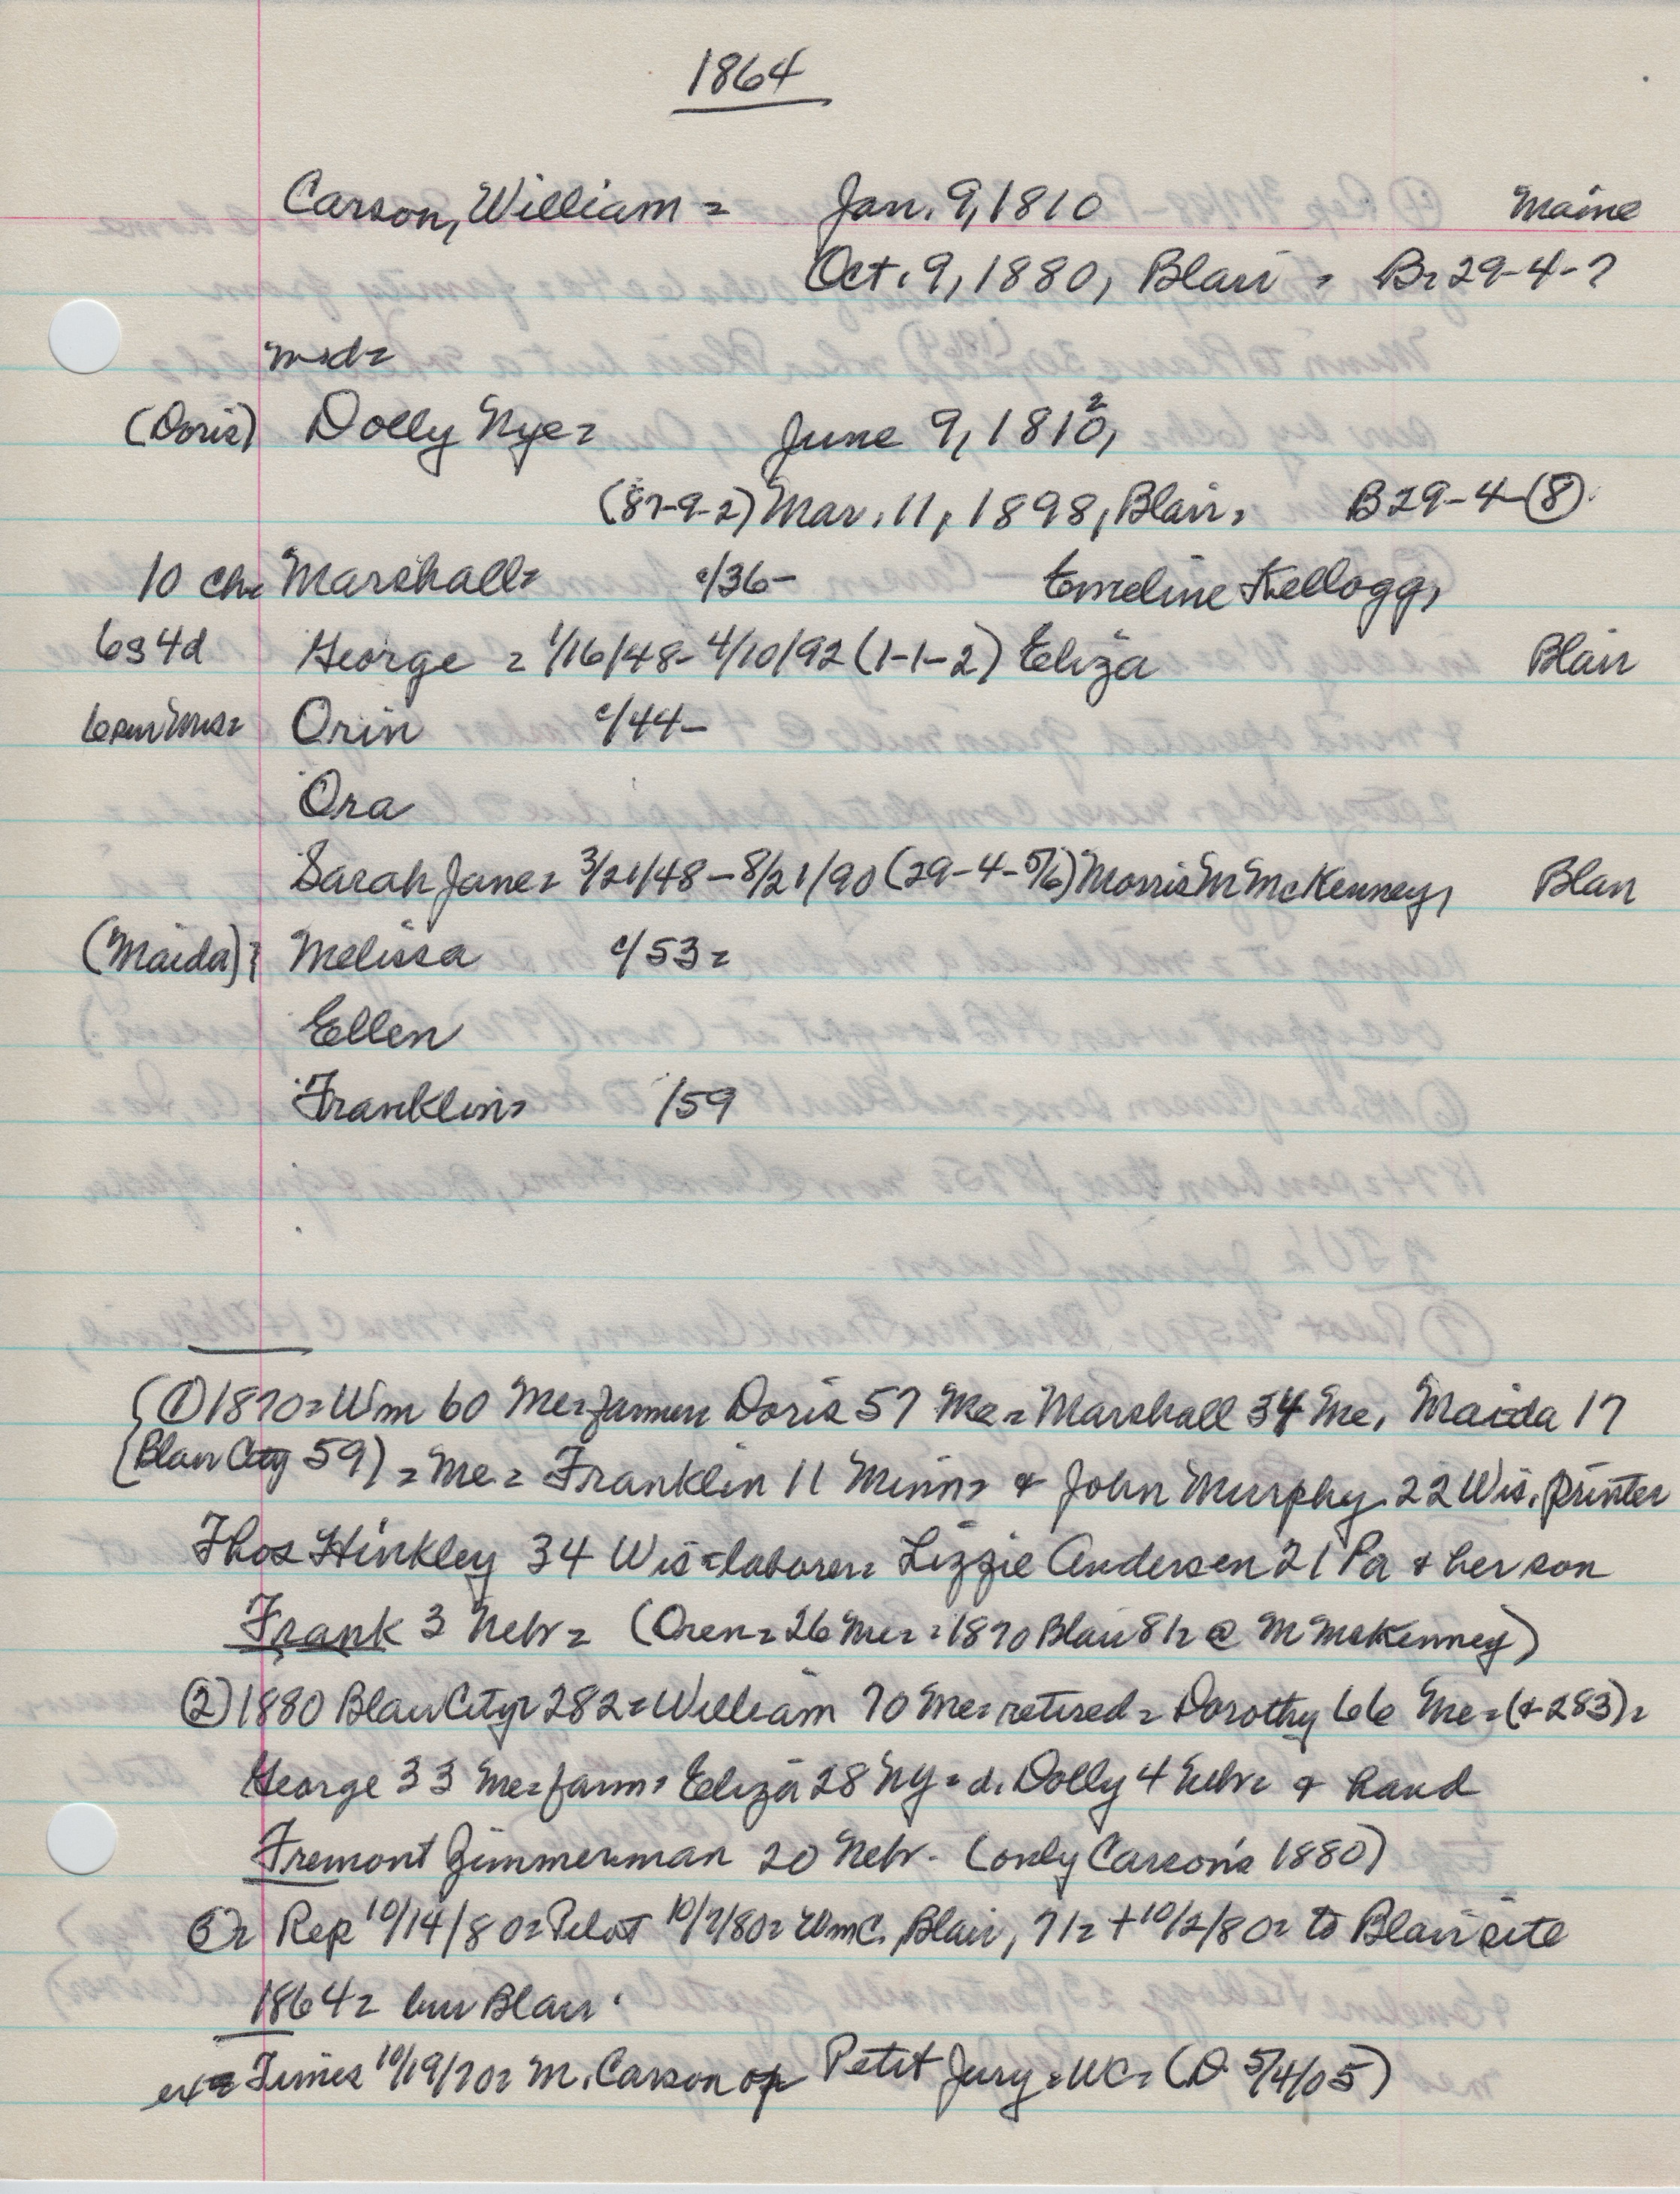 1864
Carson, William = Jan. 9, 1810 Maine
Oct. 9, 1880, Blair = Br 29-4-?
md=
(Doris) Dolly Nye = June 9, 1810, 2
(87-9-2) Mar. 11, 1898, Blair, B 29-4-(8)
10 ch. Marshall= c/36- Emeline Kellogg,
6s 4d George = 1/16/48- 4/10/92 (1-1-2) Eliza Blair
Orin c/44-
Ora
Sarah Jane= 3/21/48-8/21/90 (29-4-5/6) Morris M McKenney, Blair
(Maida)? Melissa c/53=
Ellen
Franklin= /59
(1) 1870=Wm 60 Me=farmer Doris 57 Me= Marshall 34 Me, Maida 17
Blair City 59) = Me= Franklin 11 Minn= + John Murphy 22 Wis. printer
Thos Hinkley 34 Wis=laborer= Lizzie Andersen 21 Pa + her son
Frank 3 Nebr= (Oren=26 Me=1870 Blair 81= @ M McKenney)
(2) 1880 Blair City= 282= William 70 Me=retired= Dorothy 66 Me=(+283)=
George 33 Me=farm= Eliza 28 NY=d. Dolly 4 Nebr= + hand
Fremont Zimmerman 20 Nebr. (only Carson's 1880)
(3)= Rep 10/14/80= Pilot 10/7/80= WmC. Blair, 71= + 10/2/80= to Blair site
1864= bur Blair.
ex= Times 10/19/70= M. Carson on Petit Jury=WC= (D. 5/4/05)